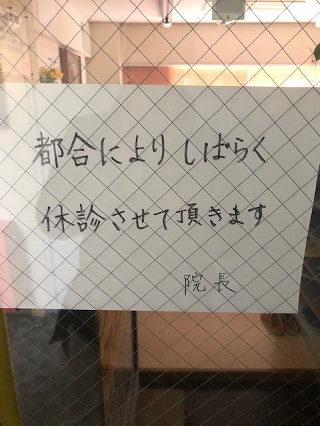 都合によりしばらく
休診させて頂きます
院長